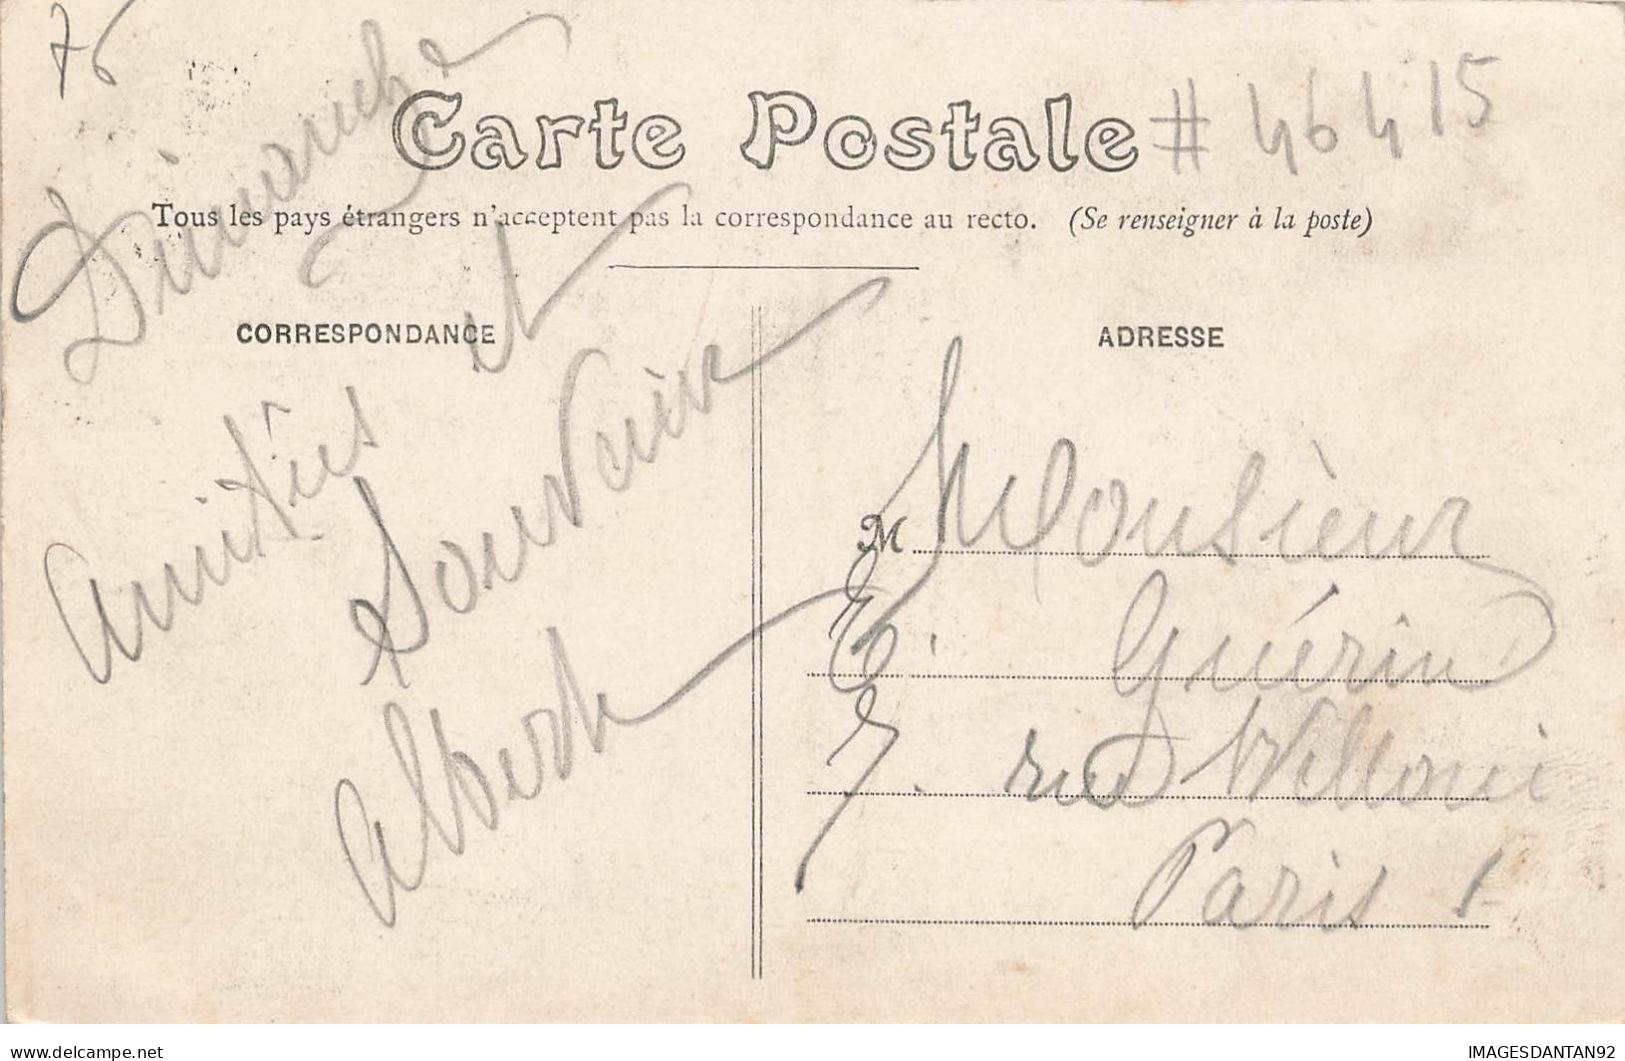 76
Carte Postale # 46415
Tous les pays étrangers n'acceptent pas la correspondance au recto. (Se renseigner à la poste)
CORRESPONDANCE
Dimanche
Amitiés et
Souvenir
Albert
ADRESSE
M Monsieur
E. Guérin
7. rue
Paris 1
delcampe.net
IMAGESDANTAN92